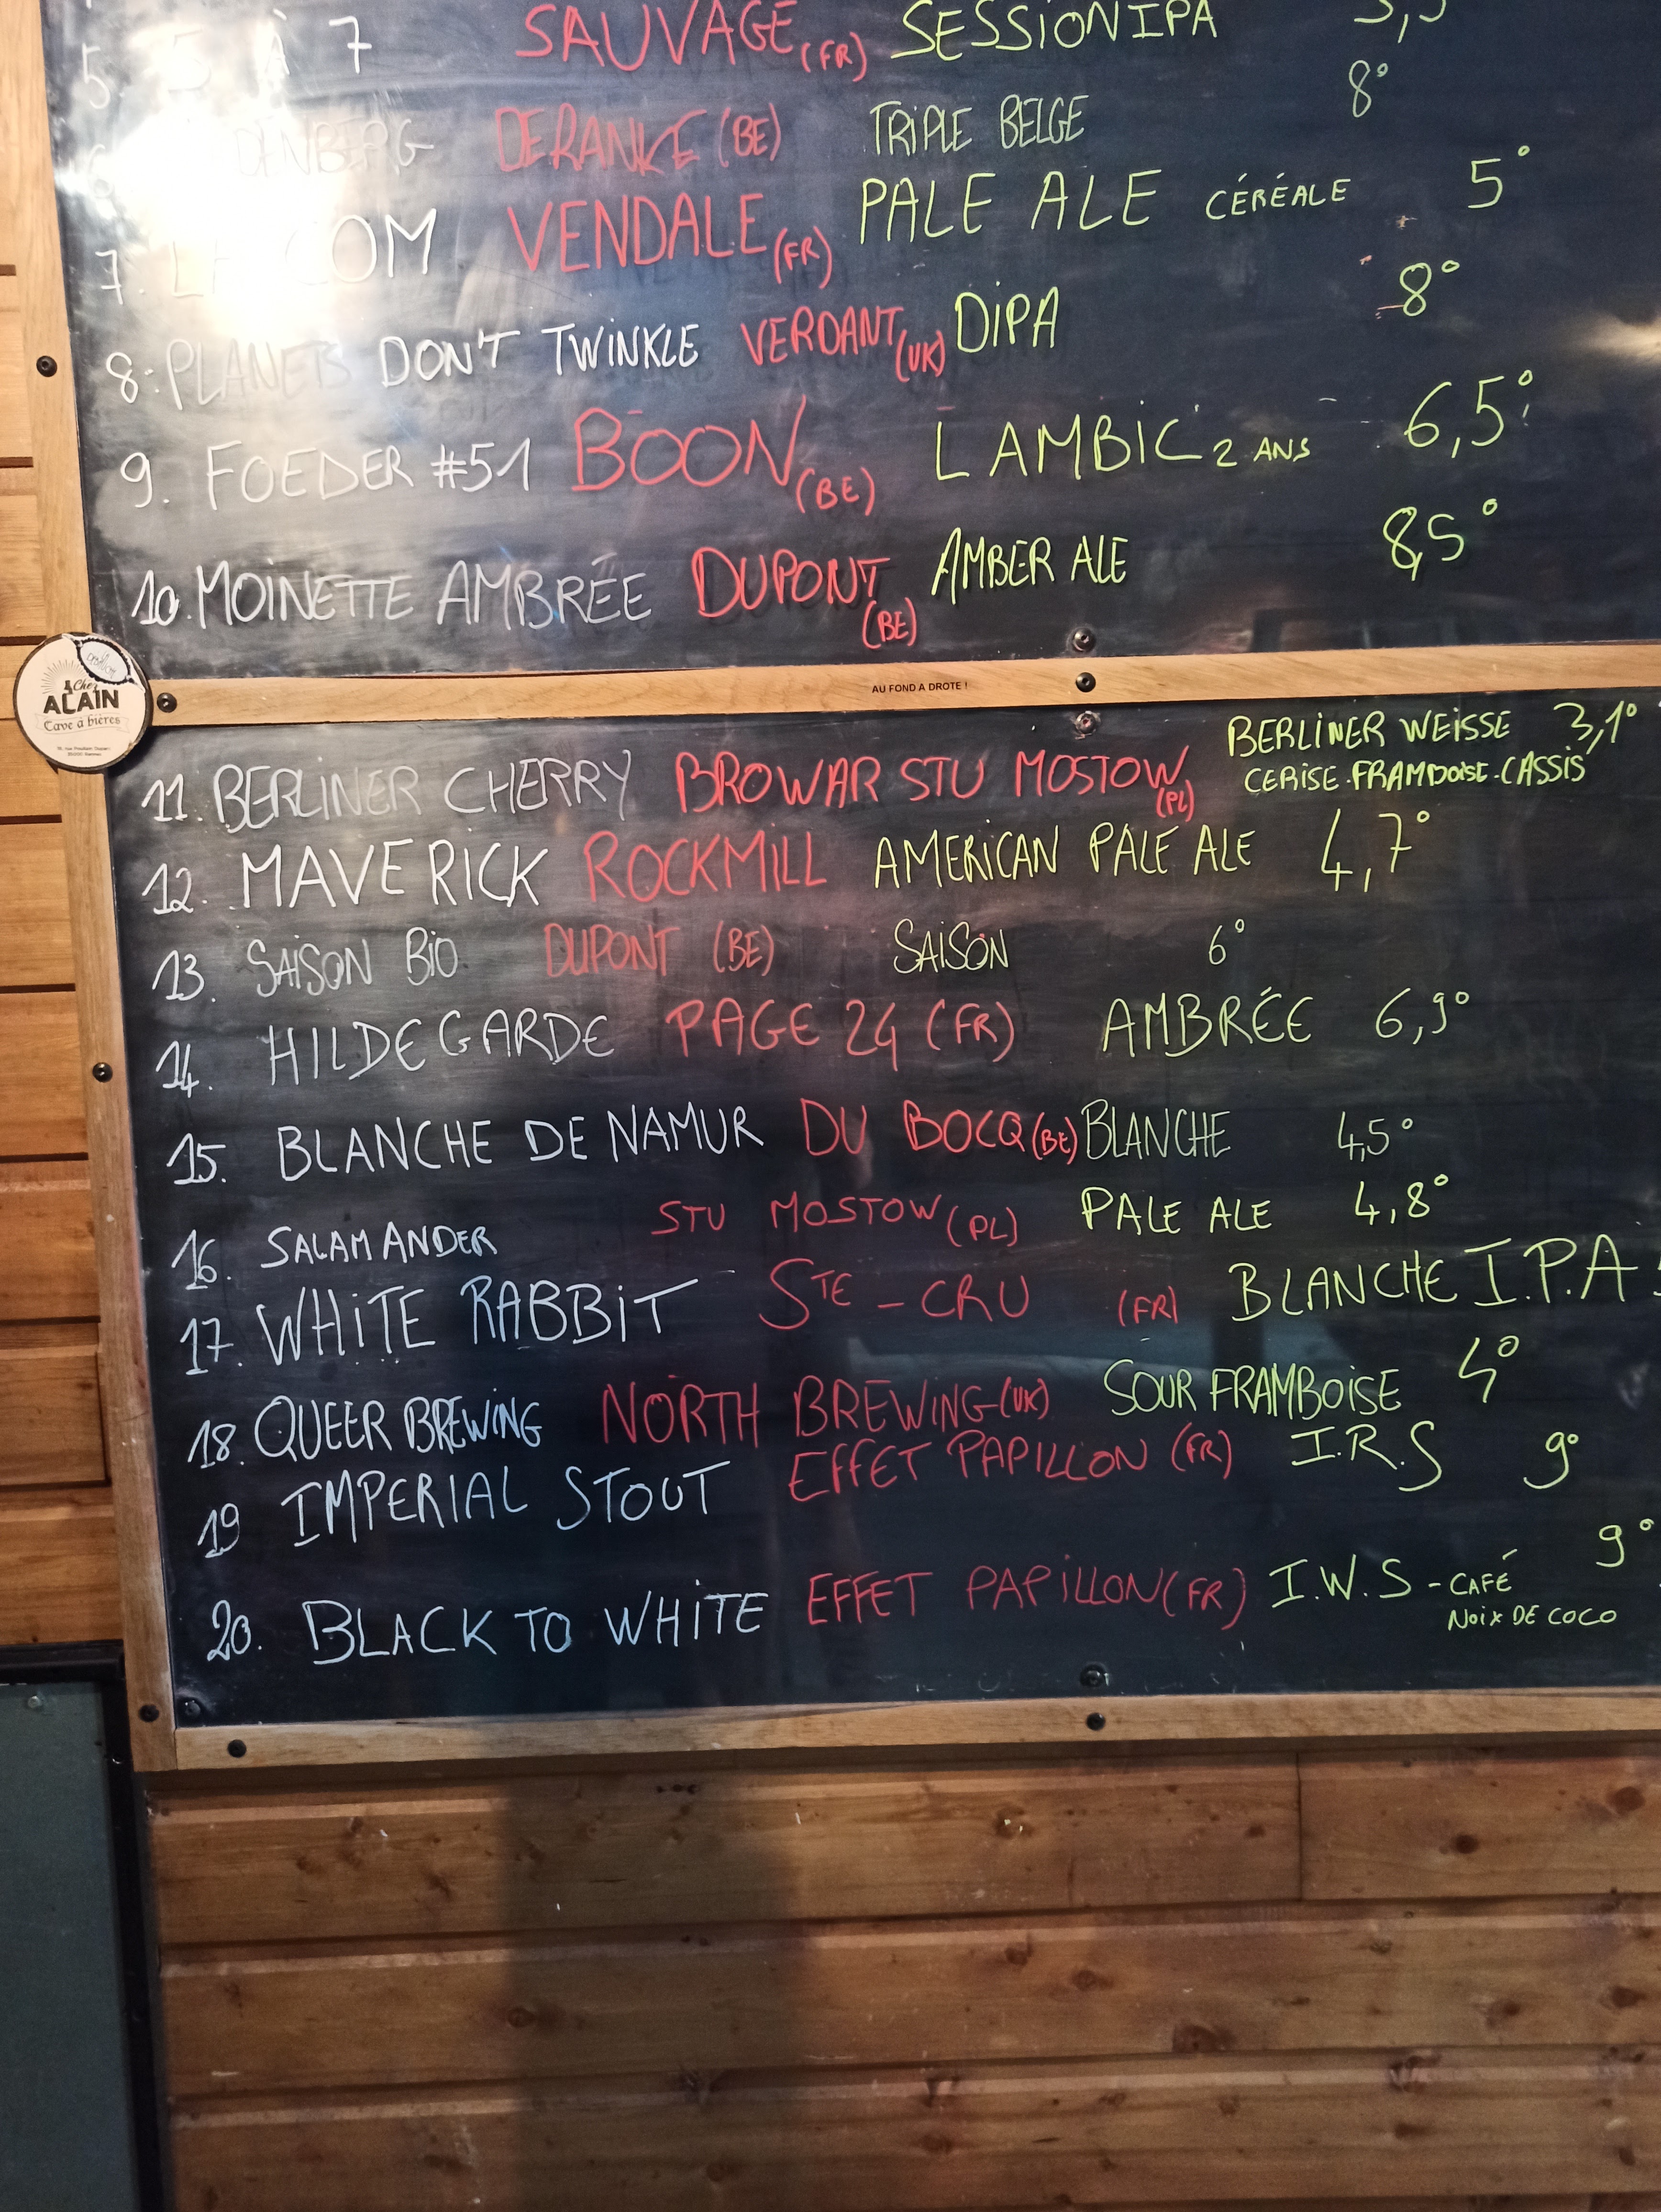 5. 5 À 7 SAUVAGE (FR) SESSION IPA
DERANKE (BE) TRIPLE BELGE 8°
7. LA COM VENDALE (FR) PALE ALE CÉRÉALE 5°
8. PLANETS DON'T TWINKLE VERDANT (UK) DIPA 8°
9. FOEDER #51 BOON (BE) LAMBIC 2 ANS 6,5°
10. MOINETTE AMBRÉE DUPONT (BE) AMBER ALE 8,5°
Chez
ALAIN
Cave à bières
AU FOND A DROTE !
11. BERLINER CHERRY BROWAR STU MOSTOW (PL) BERLINER WEISSE 3,1°
CERISE-FRAMBOISE-CASSIS
12. MAVERICK ROCKMILL AMERICAN PALE ALE 4,7°
13. SAISON BIO DUPONT (BE) SAISON 6°
14. HILDEGARDE PAGE 24 (FR) AMBRÉE 6,9°
15. BLANCHE DE NAMUR DU BOCQ (BE) BLANCHE 4,5°
16. SALAMANDER STU MOSTOW (PL) PALE ALE 4,8°
17. WHITE RABBIT STE-CRU (FR) BLANCHE I.P.A
18. QUEER BREWING NORTH BREWING (UK) SOUR FRAMBOISE 4°
19 IMPERIAL STOUT EFFET PAPILLON (FR) I.R.S 9°
20. BLACK TO WHITE EFFET PAPILLON (FR) I.W.S - CAFÉ 9°
NOIX DE COCO